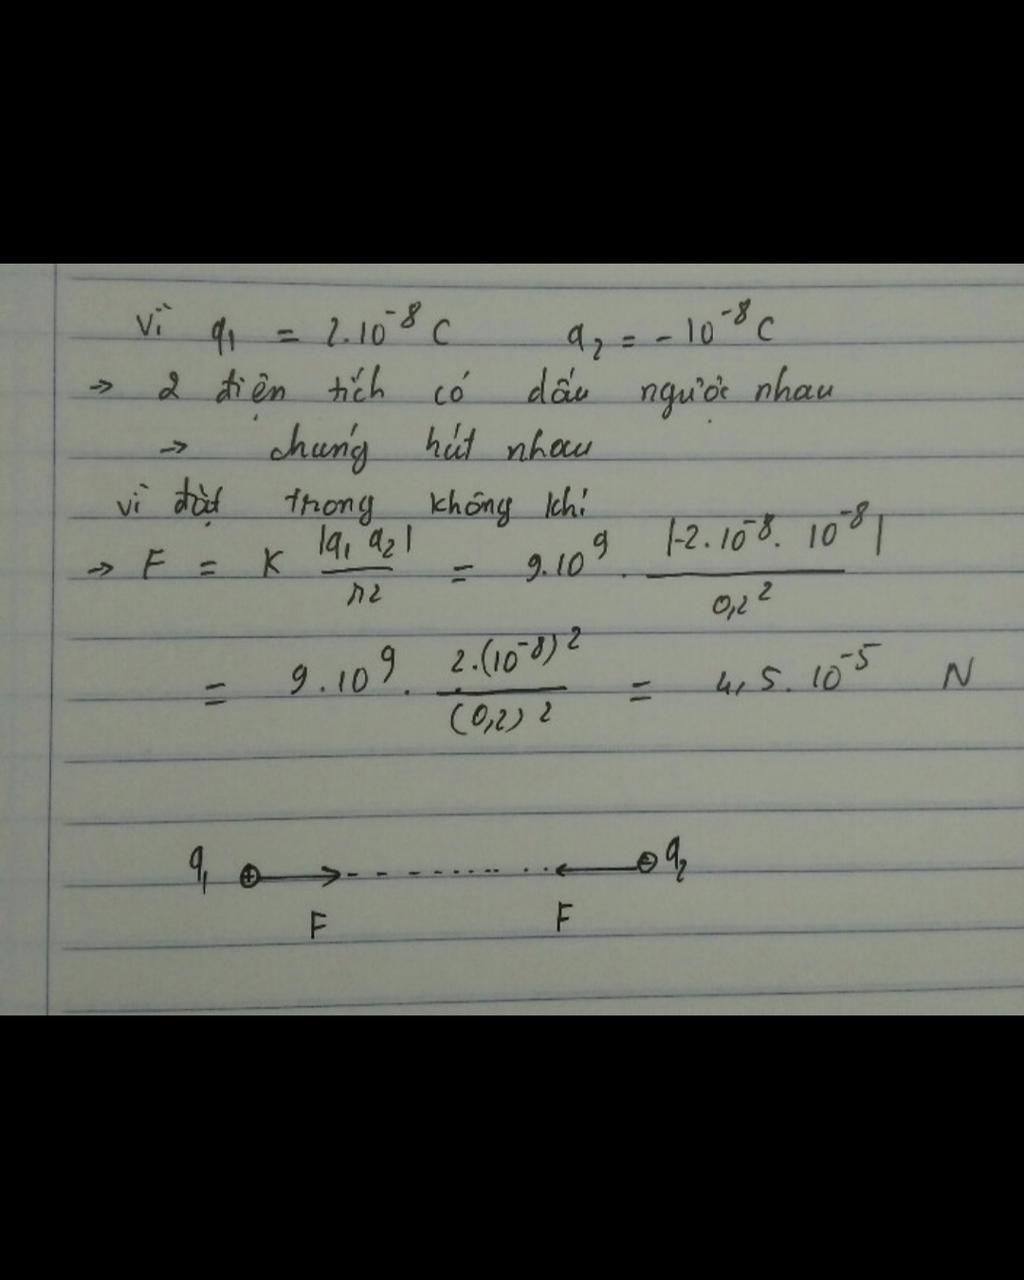 Vì q₁ = 2.10⁻⁸ C q₂ = -10⁻⁸ C
→ 2 điện tích có dấu ngược nhau
→ chúng hút nhau
Vì đặt trong không khí
→ F = K |q₁ q₂| / r² = 9.10⁹ . |-2.10⁻⁸. 10⁻⁸| / 0,2²
= 9.10⁹. 2.(10⁻⁸)² / (0,2)² = 4,5.10⁻⁵ N
q₁ ⊕ ⊖ q₂
F F